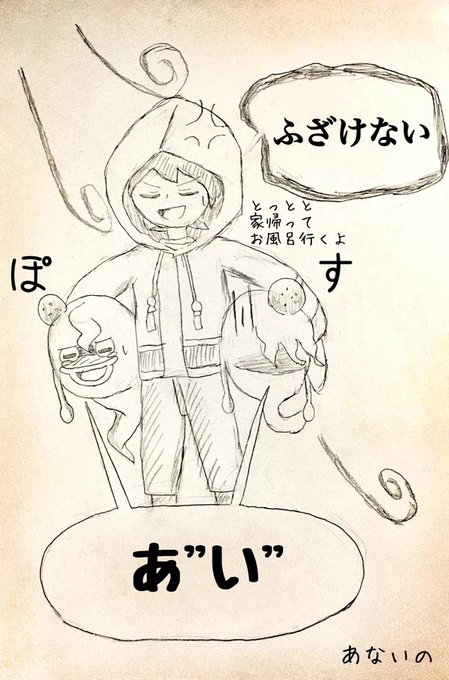 ふざけない
とっとと
家帰って
お風呂行くよ
ぽ
す
あ”い”
あないの